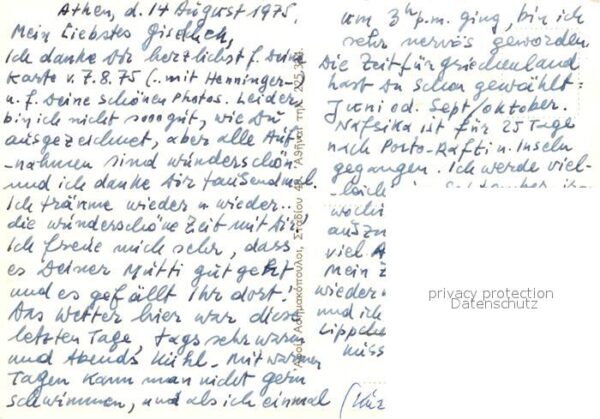 Athen, d. 14 August 1975.
Mein Liebstes
Ich danke Dir herzlichst f. Deine
Karte v. 7.8.75 (.. mit Henninger-
u. f. Deine schönen Photos. Leider
bin ich nicht sooo gut, wie Du
ausgezeichnet, aber alle Auf-
-nahmen sind wunderschön
und ich danke Dir tausendmal.
Ich träume wieder u wieder..
die wunderschöne Zeit mit Dir!
Ich freue mich sehr, dass
es Deiner Mutti gut geht
und es gefällt Ihr dort!
Das Wetter hier war diese
letzten Tage, tags sehr warm
und Abends Kühl. Mit warmen
Tagen Kann man nicht gern
schwimmen, und als ich einmal
Ἀθῆναι τηλ.
Σταδίου
um 3h p.m. ging, bin ich
sehr nervös geworden.
Die Zeit für Griechenland
hast Du schon gewählt:
Juni od. Sept/oktober.
Nafsika ist für 25 Tage
nach Porto-Rafti u. Inseln
gegangen. Ich werde viel-
-leich
woch
auszu
viel A
Mein Z
wieder u
und ich
Lippche
Küss
privacy protection
Datenschutz